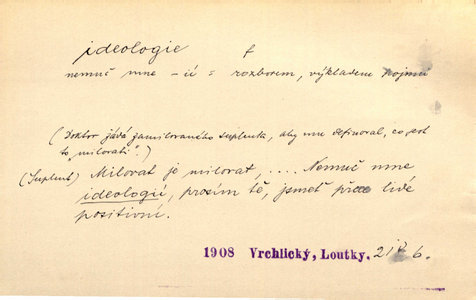 ideologie f
nemuč mne -ií = rozborem, výkladem pojmů
(Doktor žádá zamilovaného suplenta, aby mu definoval, co jest
to „milovati".)
(Suplent) Milovat je milovat, .... Nemuč mne
ideologií, prosím tě, jsmeť přece lidé
positivní.
1908 Vrchlický, Loutky. 21 6.